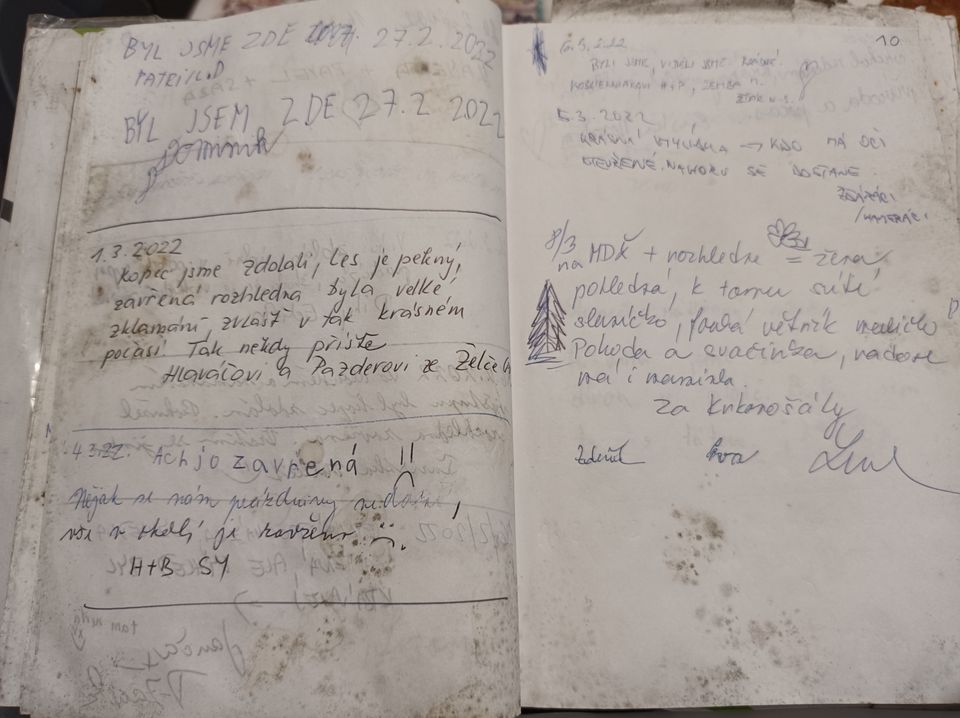 BYL JSME ZDE 27.2.2022
PATRIK.D
BYL JSEM ZDE 27.2 2022
Dominik
1.3.2022
Kopec jsme zdolali, les je pěkný,
zavřená rozhledna byla velké
zklamání, zvlášť v tak krásném
počasí. Tak někdy příště
Hlaváčovi a Pazderovi ze Želče
4.3.22. Achjo zavřená !!
Nějak se nám prázdniny nedaří,
vše v okolí je zavřeno :(
H+B SY
10
BYLI JSME, VIDĚLI JSME.
5.3.2022
→ KDO MÁ OČI
OTEVŘENÉ, NAHORU SE DOSTANE.
8/3
na MDŽ + rozhledna = žena
pohledná, k tomu svítí
sluníčko, fouká větřík maličko
Pohoda a svačinka, radost
má i maminka.
Za Krkonošály
Zdeněk Eva